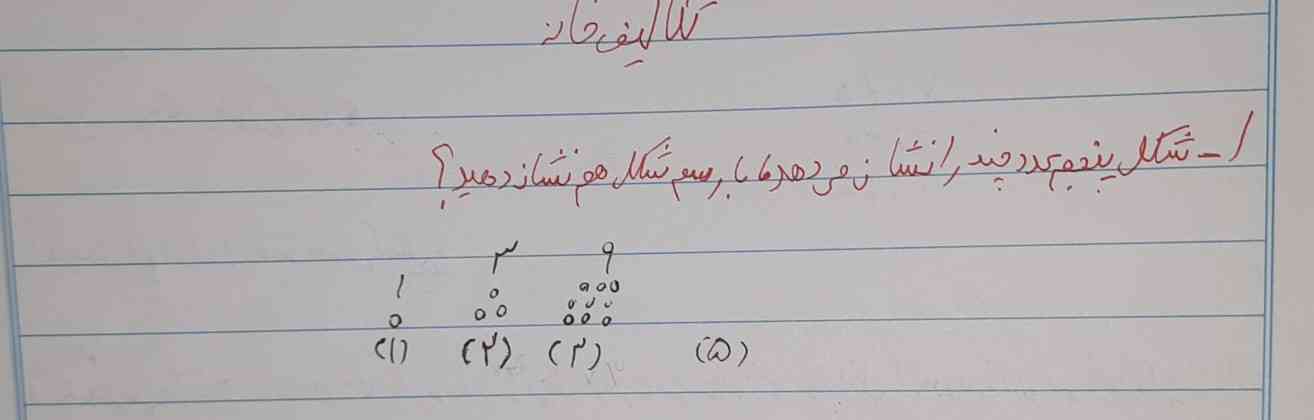 تکالیف خانه
۱ - شکل پنجم عدد چند را نشان می دهد؟ با رسم شکل هم نشان دهید؟
۱ ۳ ۹
(۱) (۲) (۳) (۵)